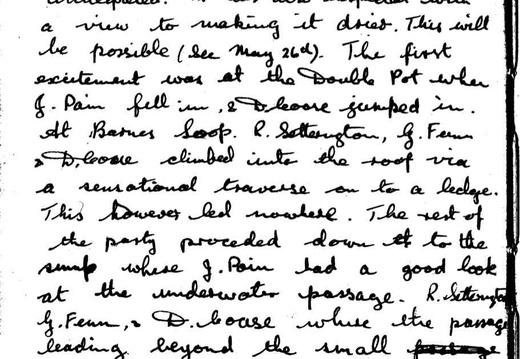 a view to making it drier. This will
be possible (See May 26th). The first
excitement was at the Double Pot when
J. Pain fell in, & D. Coase jumped in.
At Barnes Loop. R. Setterington, G. Fenn
& D. Coase climbed into the roof via
a sensational traverse on to a ledge.
This however led nowhere. The rest of
the party proceded down to the
sump where J. Pain had a good look
at the underwater passage. R. Setterington
G. Fenn, & D. Coase the passage
leading beyond the small